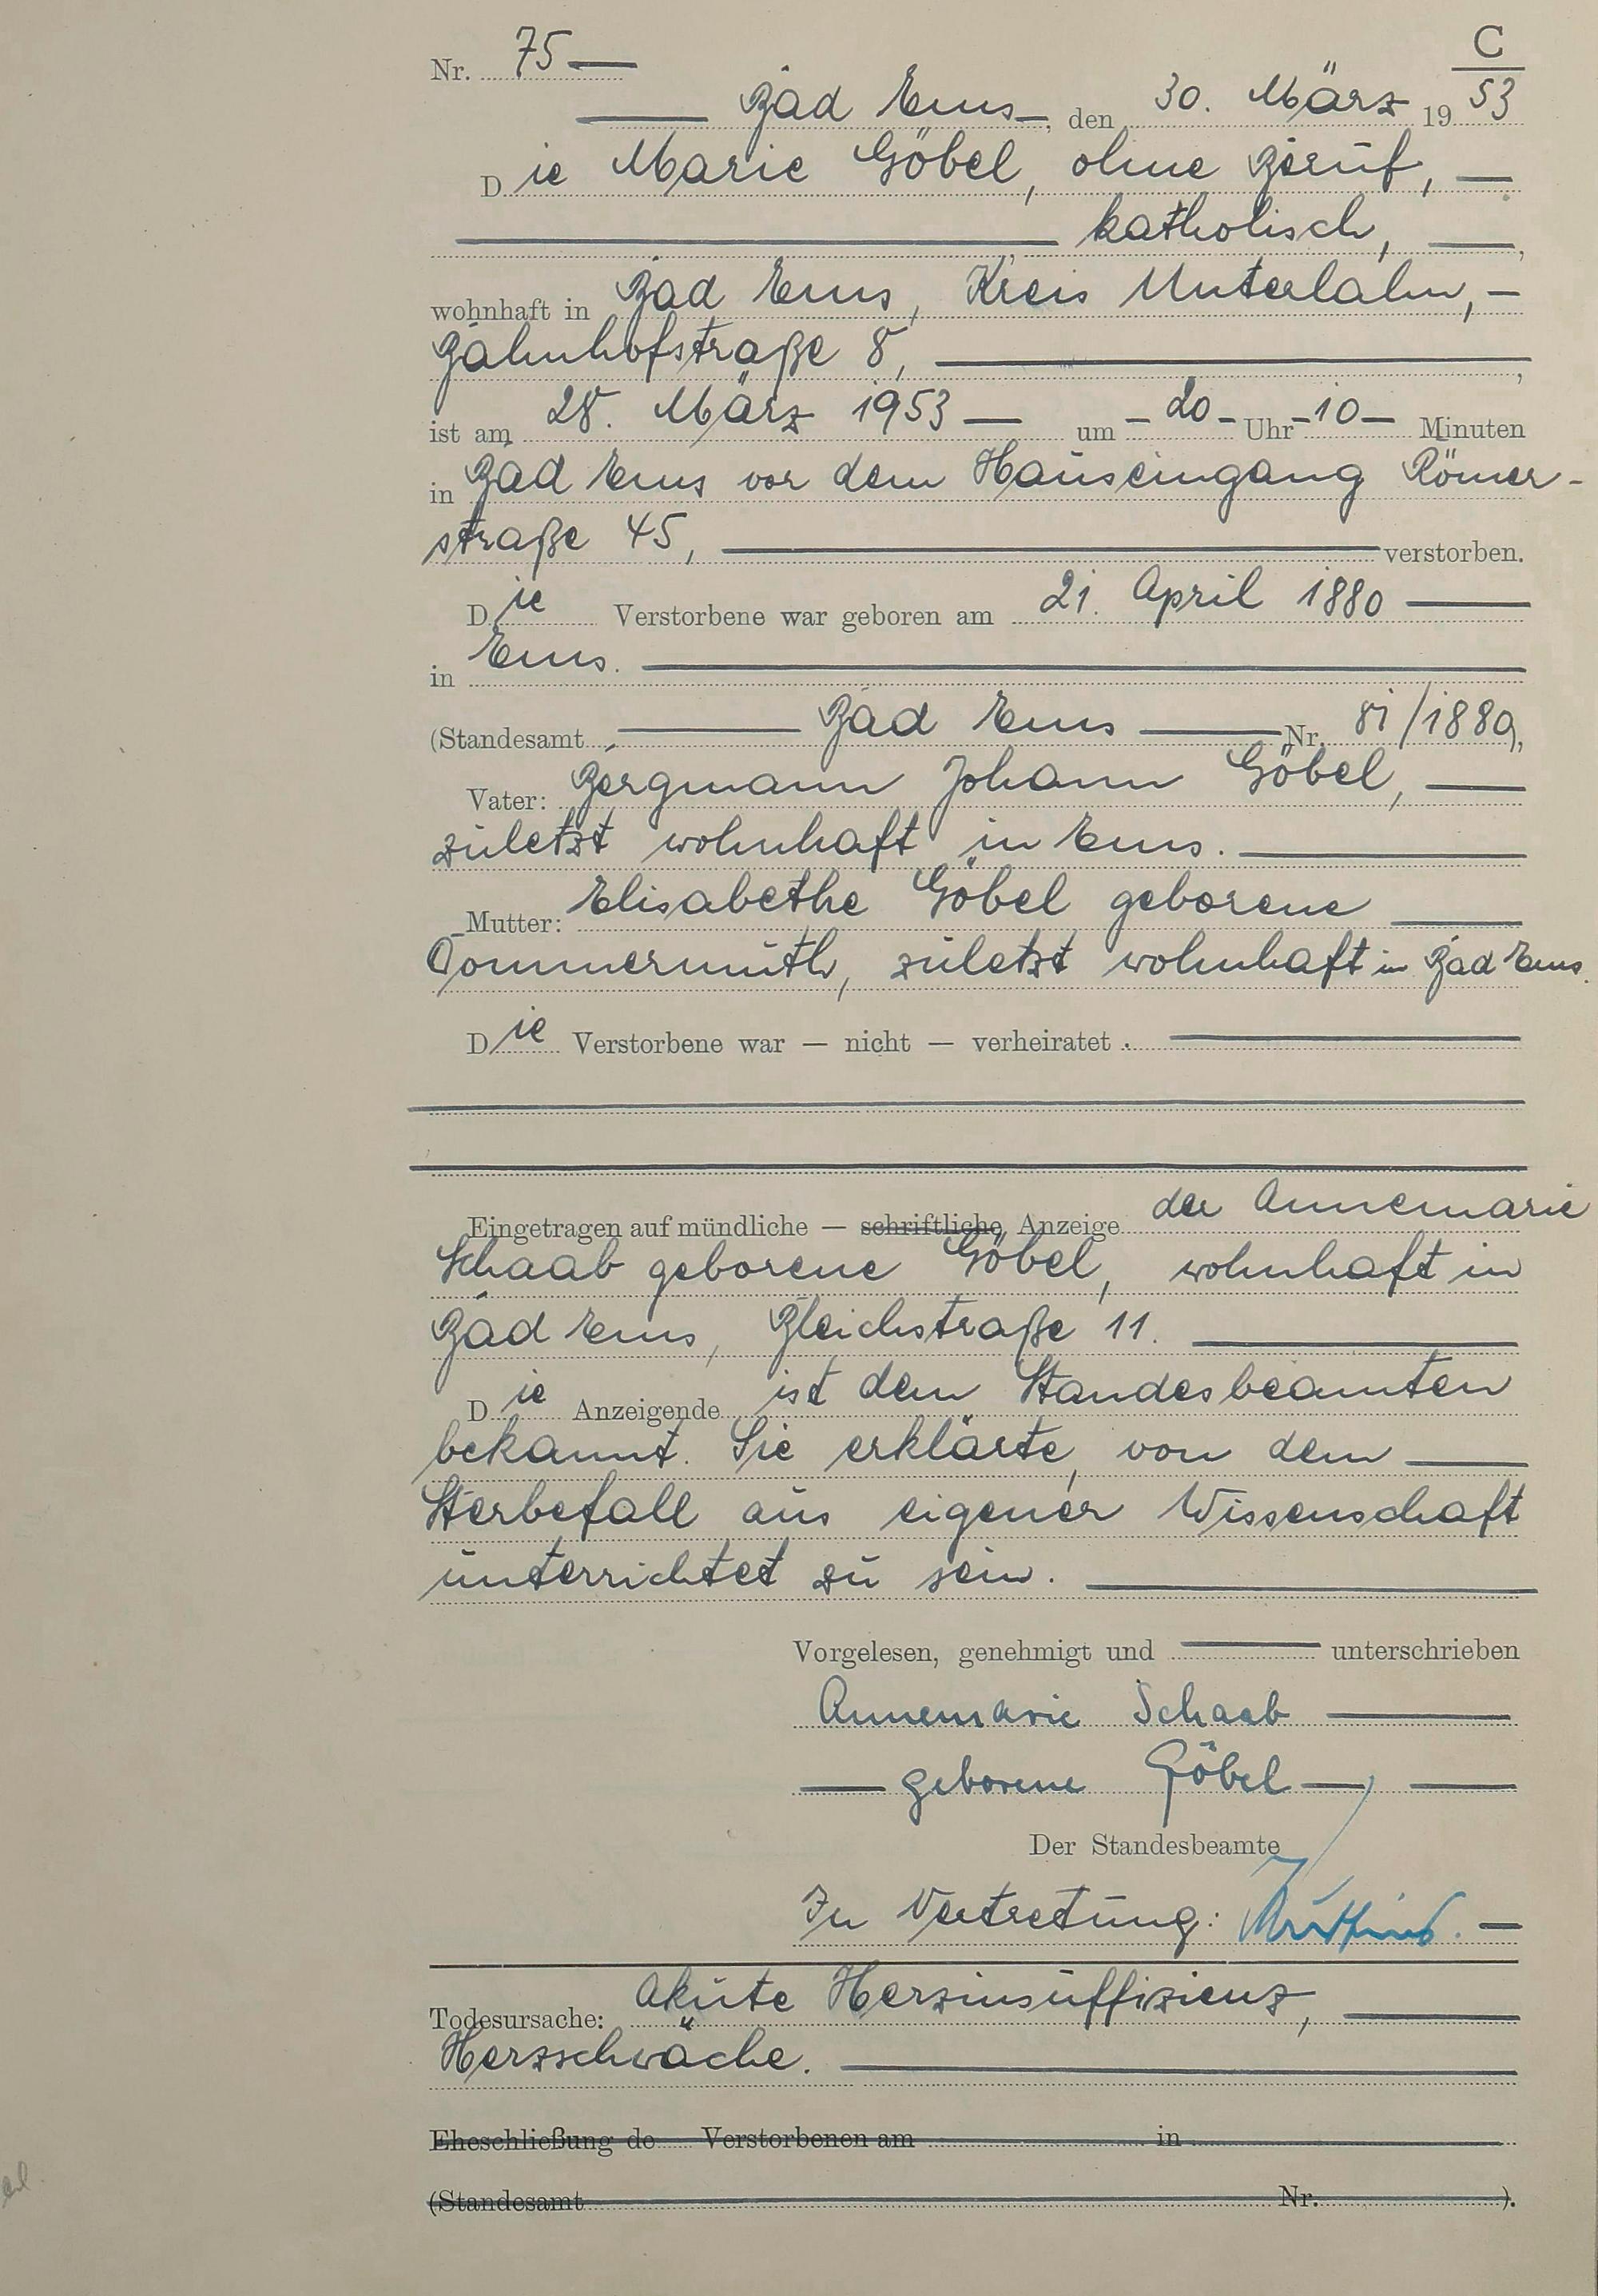 C
Nr. 75 —
— Bad Ems —, den 30. März 1953
Die Marie Göbel, ohne Beruf, —
— katholisch, —,
wohnhaft in Bad Ems, Kreis Unterlahn, —
Bahnhofstraße 8, —,
ist am 28. März 1953 — um — 20 — Uhr — 10 — Minuten
in Bad Ems vor dem Hauseingang Römer-
straße 45, — verstorben.
Die Verstorbene war geboren am 21. April 1880 —
in Ems. —
(Standesamt — Bad Ems — Nr. 81/1880),
Vater: Bergmann Johann Göbel, —
zuletzt wohnhaft in Ems. —
Mutter: Elisabethe Göbel geborene —
Dommermuth, zuletzt wohnhaft in Bad Ems.
Die Verstorbene war — nicht — verheiratet. —
Eingetragen auf mündliche — schriftliche Anzeige der Annemarie
Schaab geborene Göbel, wohnhaft in
Bad Ems, Bleichstraße 11. —
Die Anzeigende ist dem Standesbeamten
bekannt. Sie erklärte, von dem —
Sterbefall aus eigener Wissenschaft
unterrichtet zu sein. —
Vorgelesen, genehmigt und — unterschrieben
Annemarie Schaab —
— geborene Göbel — —
Der Standesbeamte
In Vertretung: —
Todesursache: Akute Herzinsuffizienz, —
Herzschwäche. —
Eheschließung de Verstorbenen am in
(Standesamt Nr. ).